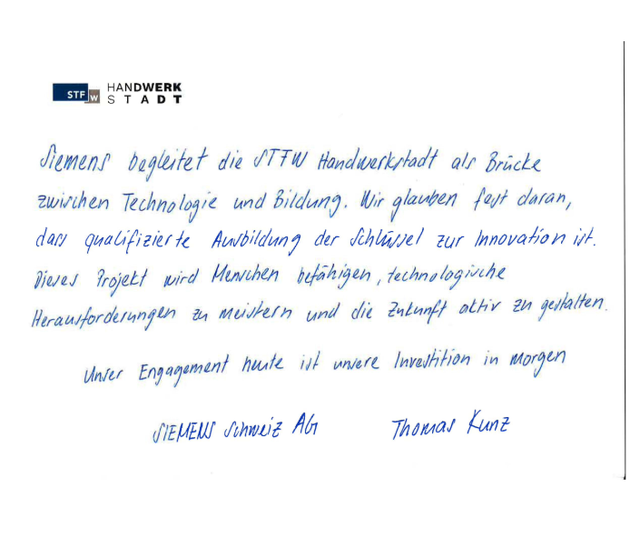 STF W HANDWERK
STADT
Siemens begleitet die STFW Handwerkstadt als Brücke
zwischen Technologie und Bildung. Wir glauben fest daran,
dass qualifizierte Ausbildung der Schlüssel zur Innovation ist.
Dieses Projekt wird Menschen befähigen, technologische
Herausforderungen zu meistern und die Zukunft aktiv zu gestalten.
Unser Engagement heute ist unsere Investition in morgen
SIEMENS Schweiz AG Thomas Kunz